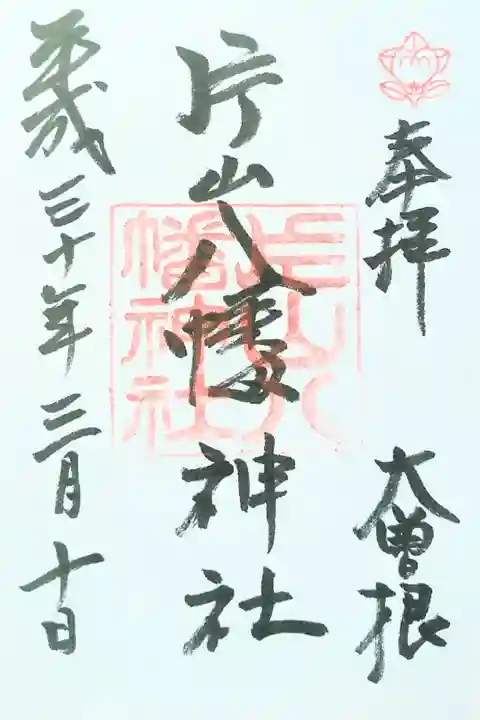 奉拝 大曽根
片山八幡神社
片山八幡神社
平成三十年三月十日